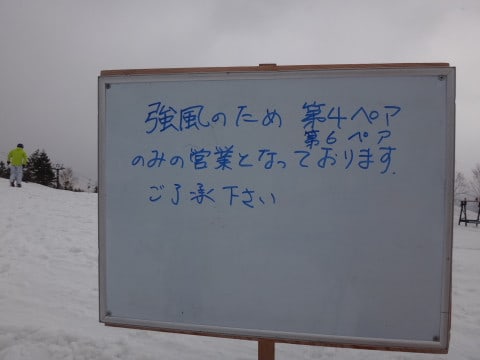 強風のため 第4ペア
第6ペア
のみの営業となっております.
ご了承下さい